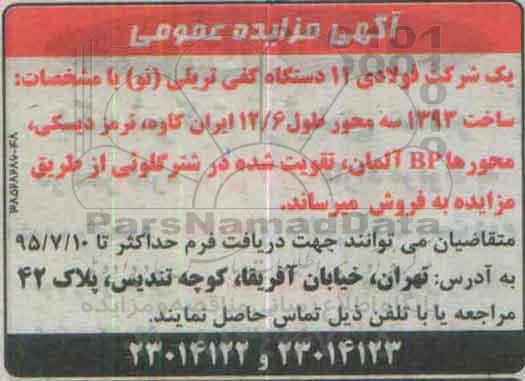 آگهی مزایده عمومی
یک شرکت فولادی ۱۱ دستگاه کفی تریلی (نو) با مشخصات:
ساخت ۱۳۹۳ سه محور طول ۱۲/۶ ایران کاوه، ترمز دیسکی،
محورها BP آلمان، تقویت شده در شترگلوئی از طریق
مزایده به فروش میرساند.
ParsNamadData
متقاضیان می توانند جهت دریافت فرم حداکثر تا ۹۵/۷/۱۰
به آدرس: تهران، خیابان آفریقا، کوچه تندیس، پلاک ۴۲
مراجعه یا با تلفن ذیل تماس حاصل نمایند.
۲۳۰۱۴۱۲۳ و ۲۳۰۱۴۱۲۲